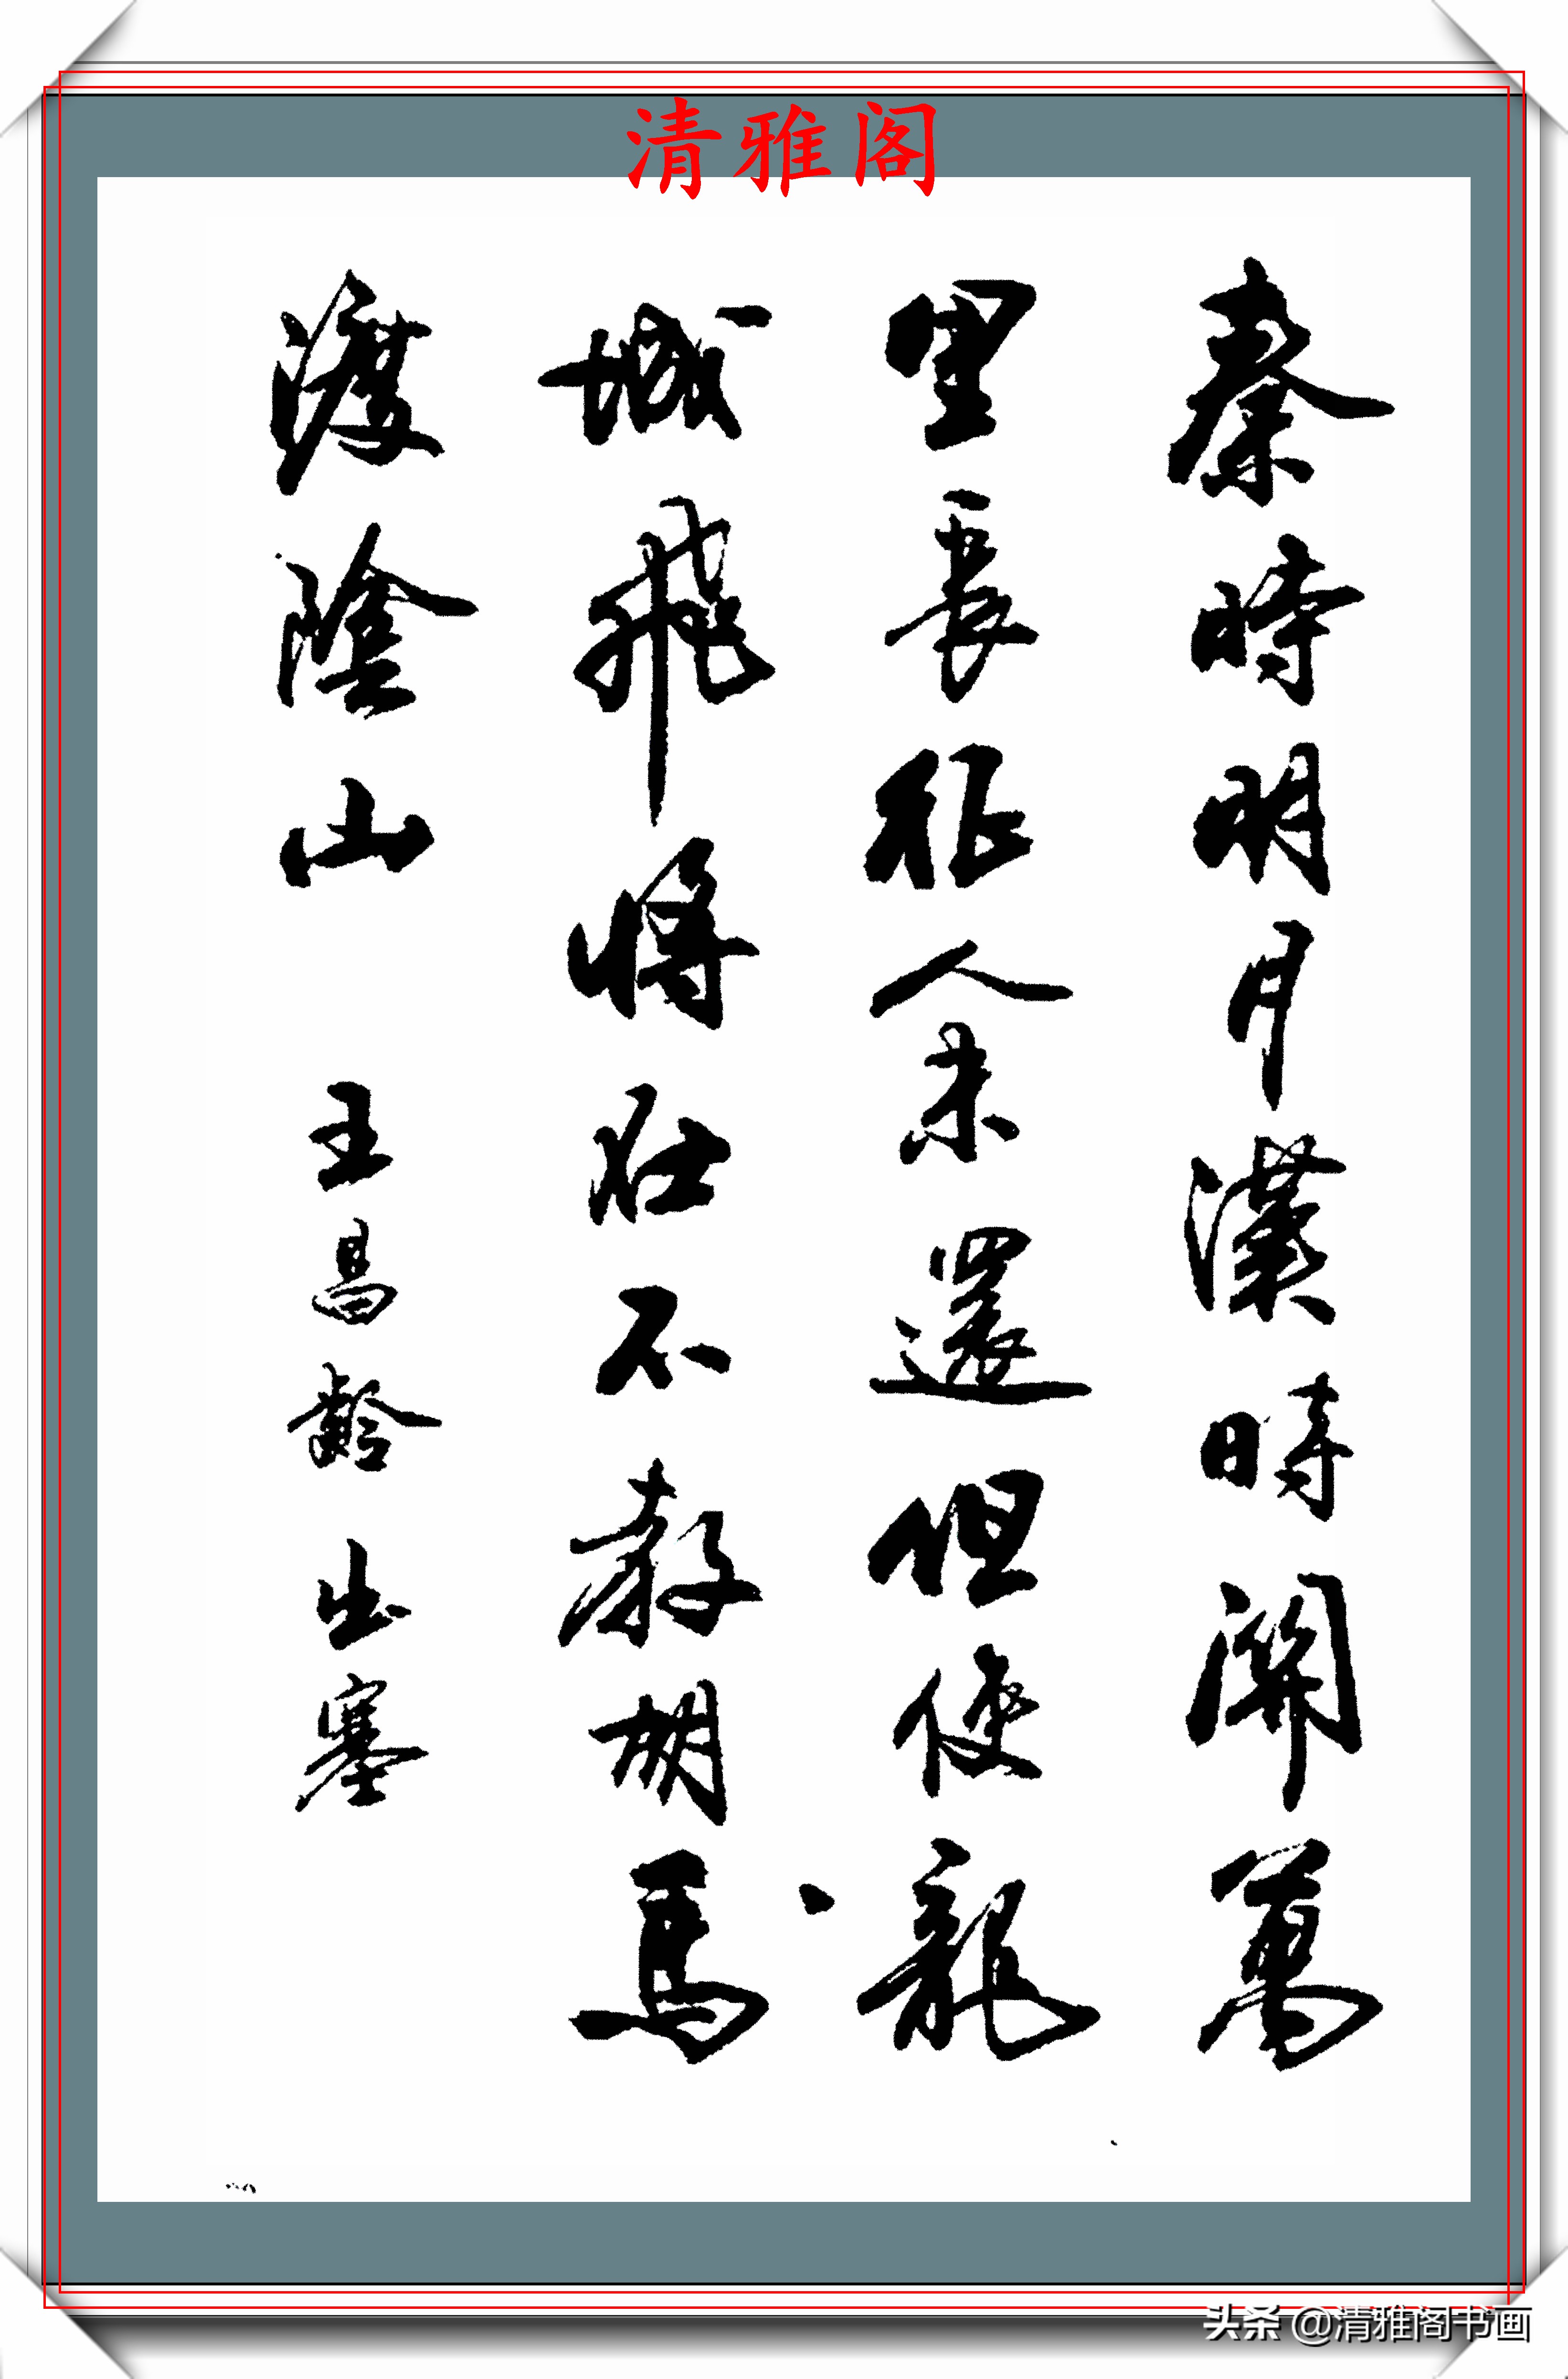 清雅阁
秦時明月漢時關萬
里長征人未還但使龍
城飛將在不教胡馬
渡陰山 王昌齡出塞
头条 @清雅阁书画